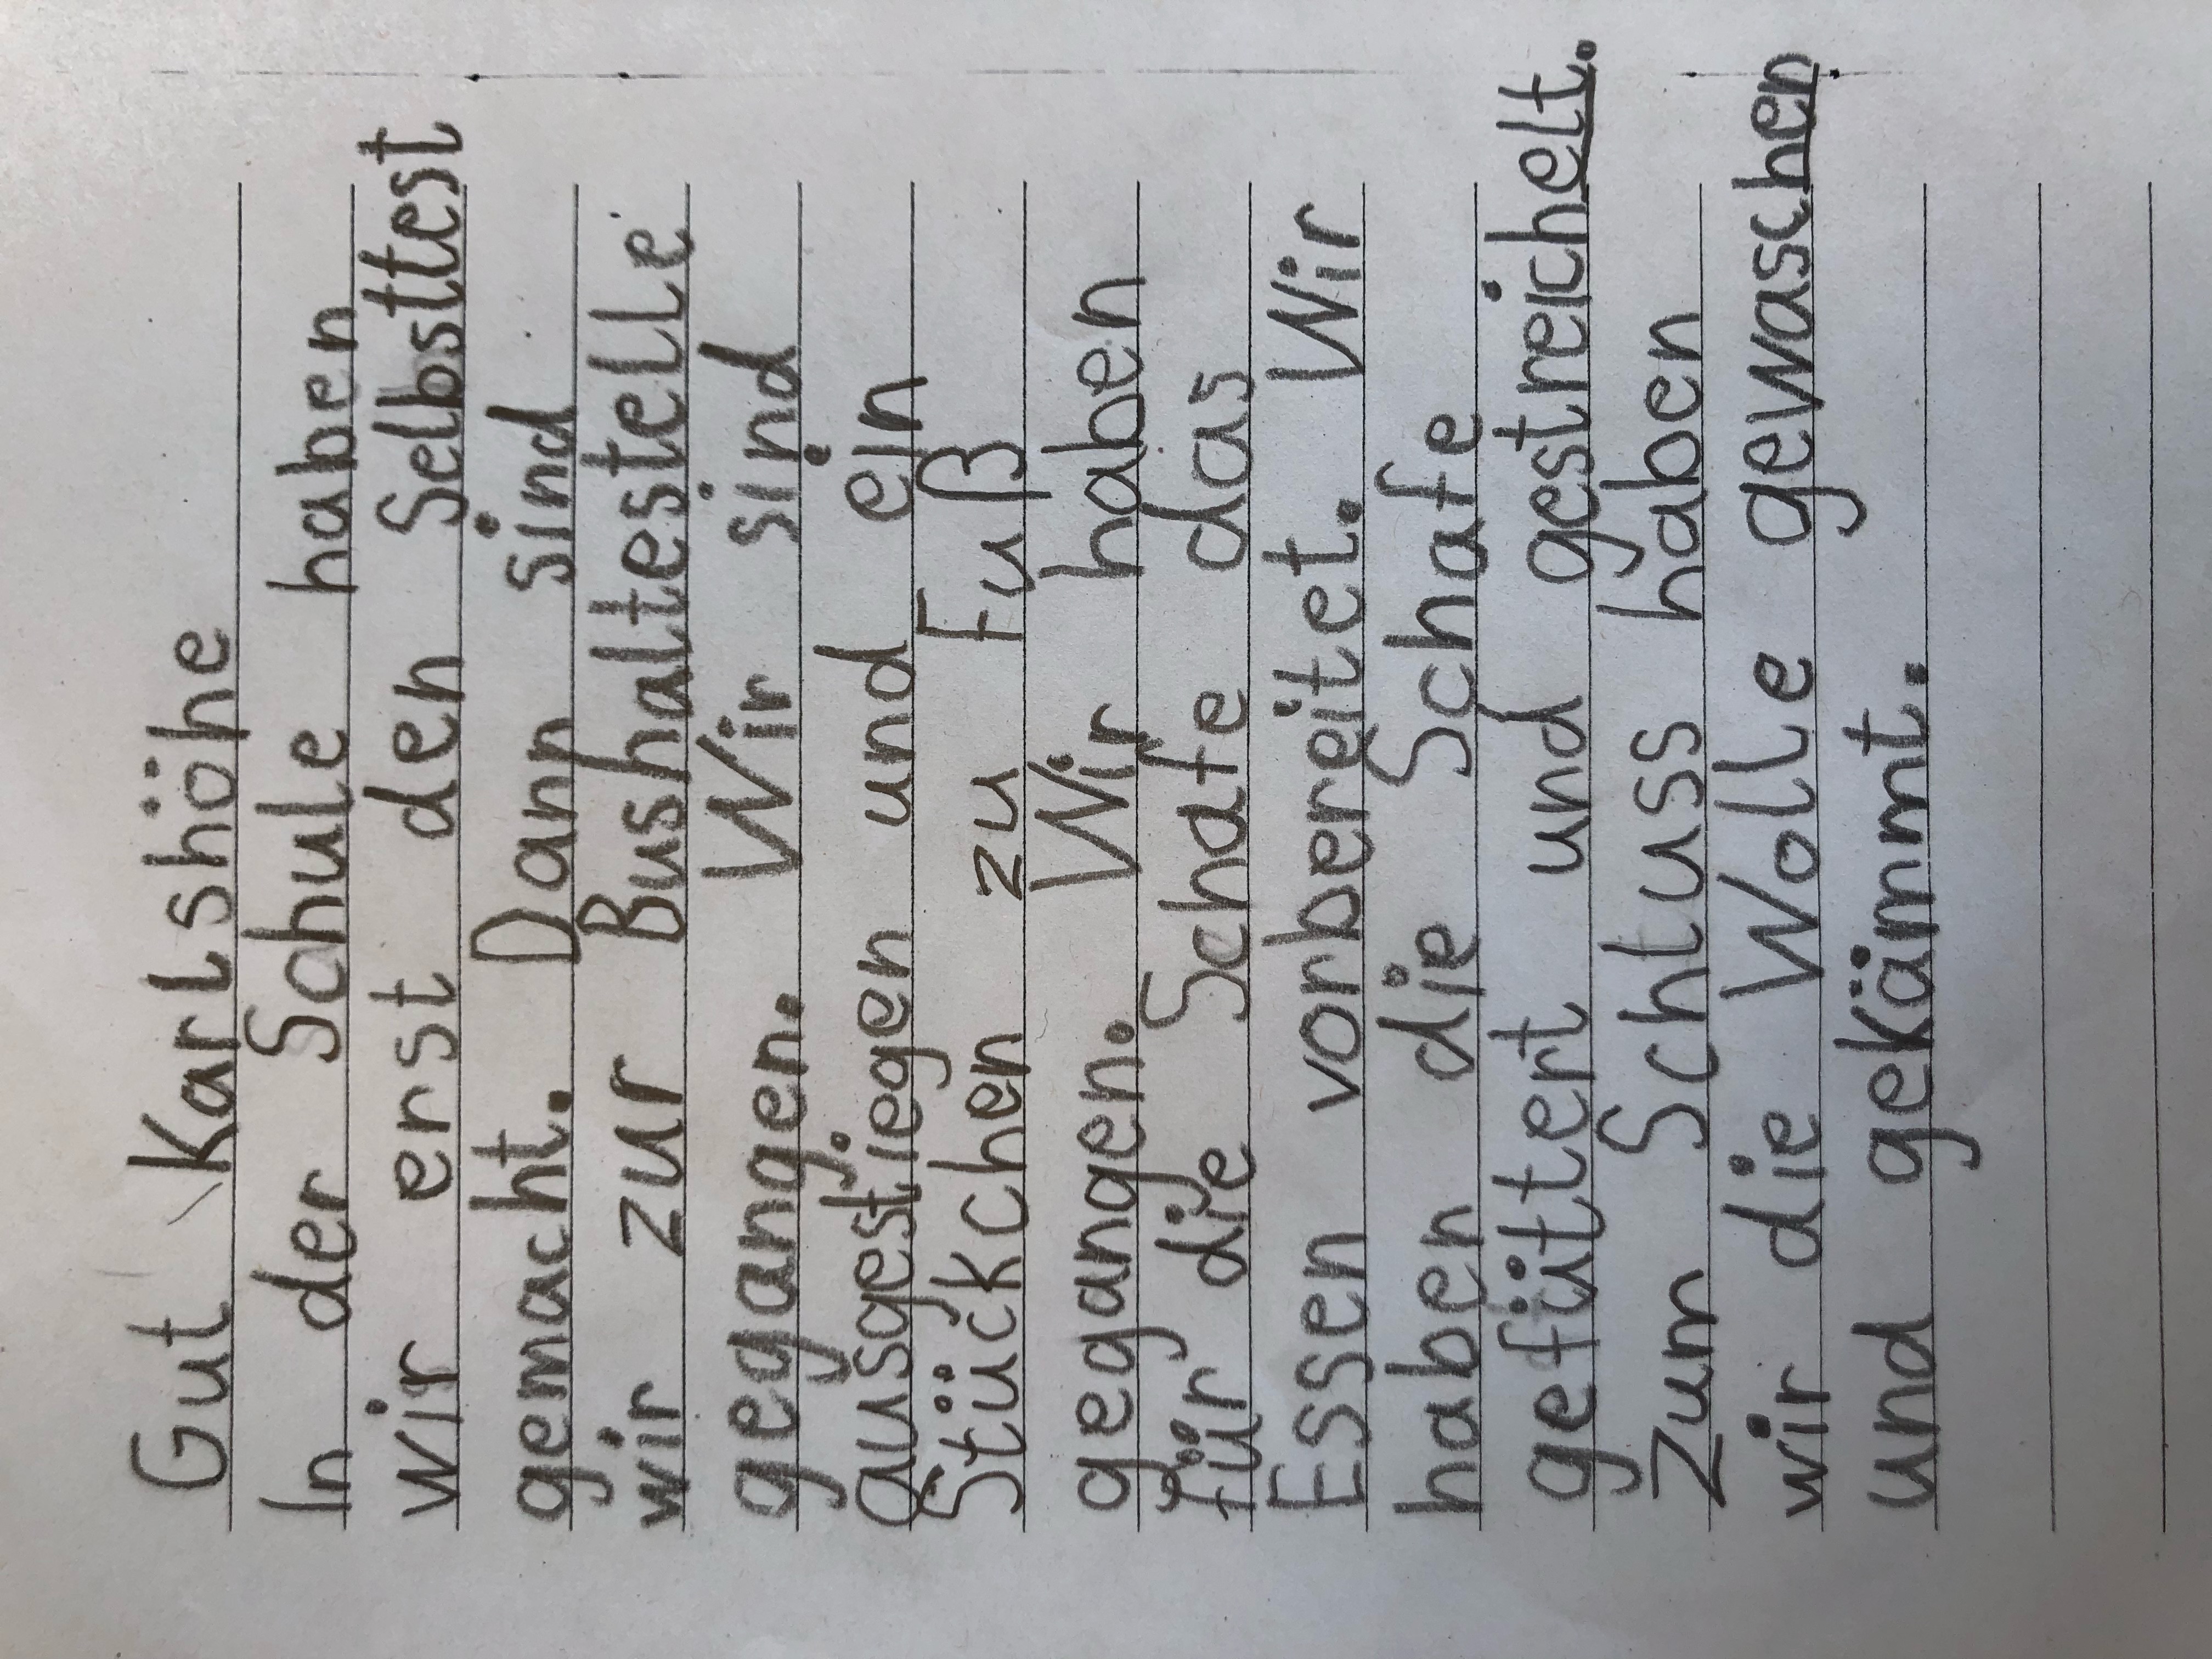 Gut Karlshöhe
In der Schule haben
wir erst den Selbsttest
gemacht. Dann sind
wir zur Bushaltestelle
gegangen. Wir sind
ausgestiegen und ein
Stückchen zu Fuß
gegangen. Wir haben
für die Schafe das
Essen vorbereitet. Wir
haben die Schafe
gefüttert und gestreichelt.
Zum Schluss haben
wir die Wolle gewaschen
und gekämmt.